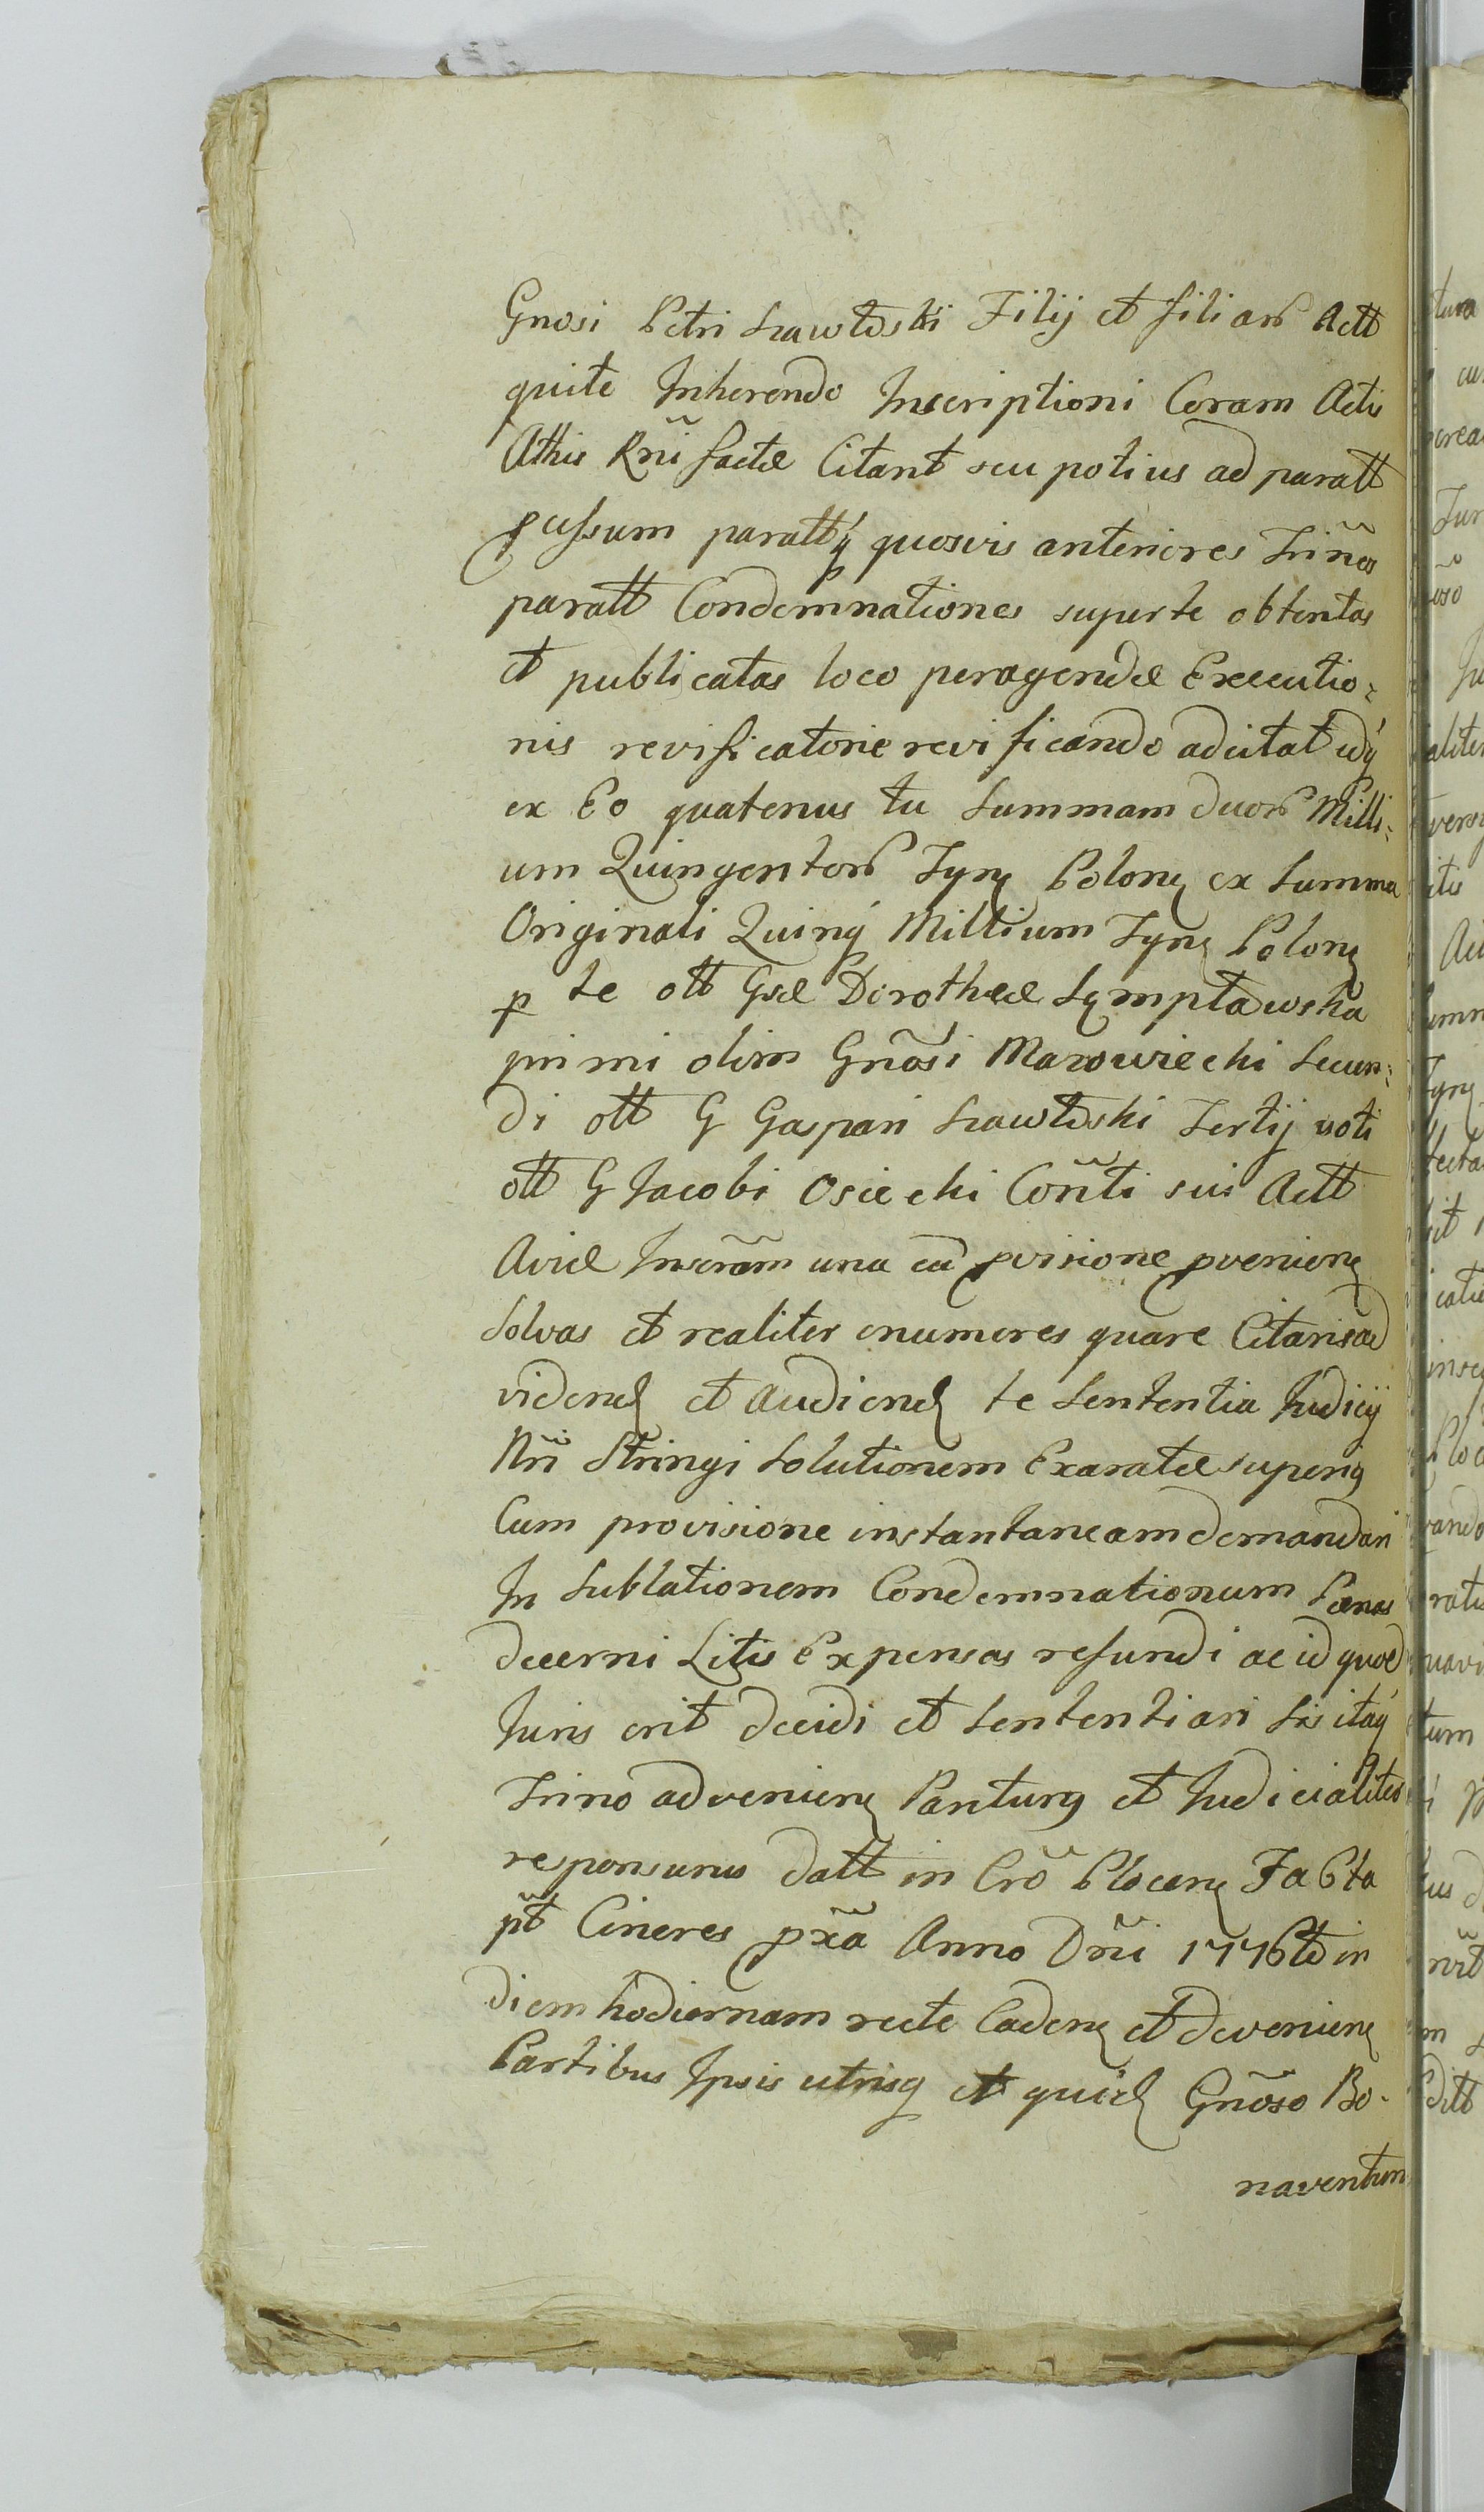 Gnosi Petri Szawłowski Filij et filiar Actt
quite Inherendo Inscriptioni Coram Actis
Atthis Rñi factæ Citant seu potius ad paratt
pcessum parattq́ quosvis anteriores Trinos
paratt Condemnationes super te obtentas
et publicatas loco peragendæ Executio:
nis revificatorie revificando adcitat idq́
ex Eo quatenus tu Summam duor Milli:
um Quingentor Fłynę Polonę ex Summa
Originali Quinq́ Millium Fłynę Polonę
p te ott Gsæ Dorotheæ Sęmptawska
primi olim Gnõsi Mazowiechi Secun:
di ott G Gaspari Szawłowski Tertij voti
ott G Jacobi Osiechi Cõnti sui Actt
Aviæ Inscrãm una cũ pvisione pvenienę
Solvas et realiter enumeres quare Citaris ad
videnđ et Audienđ te Sententia Judicij
Nñi Stringi Solutionem Exaratæ superig
Cum provisione instantaneam demandari
In Sublationem Condemnationum Pœnas
decerni Litis Expensas refundi ac id quod
Juris erit decidi et Sententiari Sis itaq́
Trino advenienę Paritur9 et Judicialiter
responsurus datt in Crõ Płocenę Fa 6ta
pt̃ Cineres pxã Anno Dñi 1776to in
diem hodiernam recte Cadenę et devenienę
Partibus Ipsis utrisq et quiđ Gnõso Bo-
naventuræ